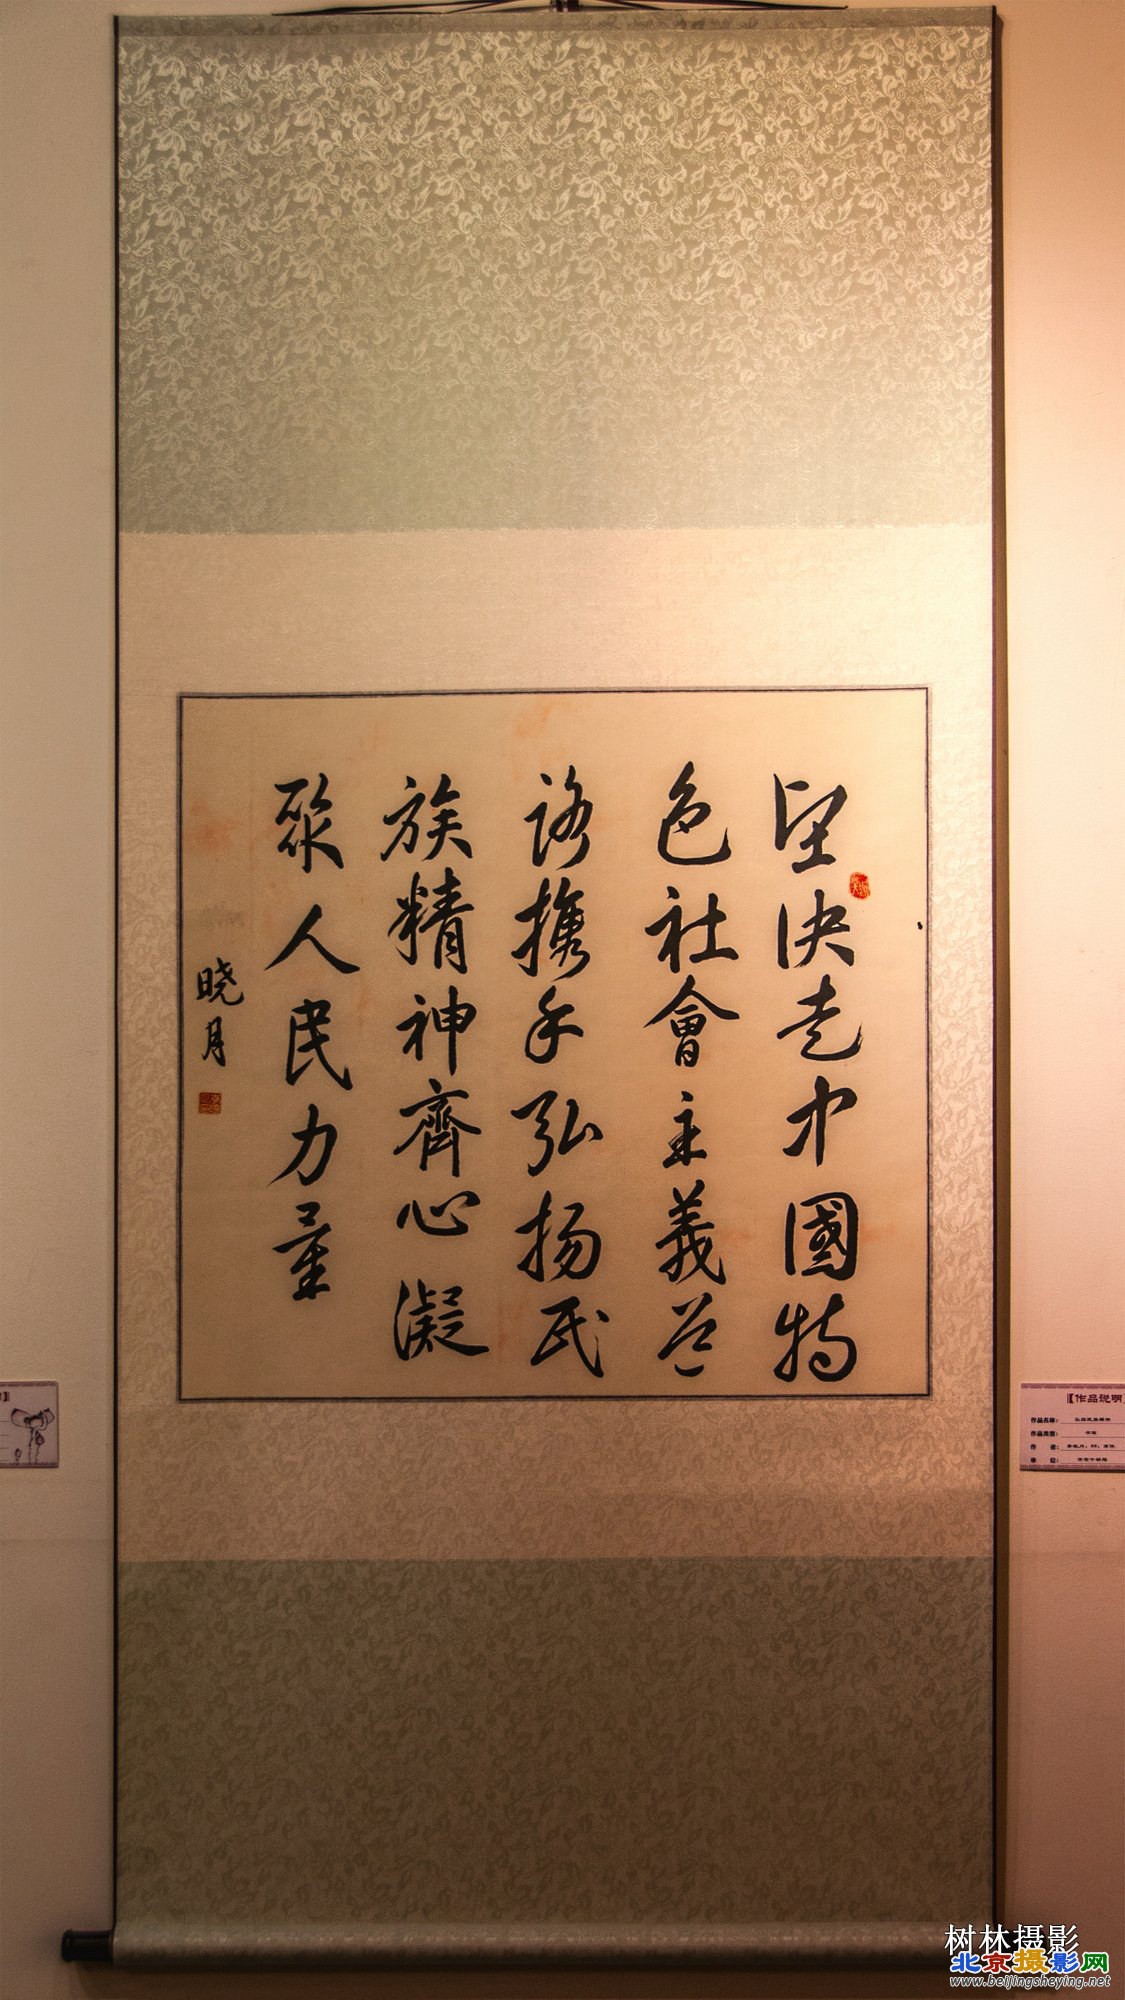 坚决走中國特
色社會主義道
路携手弘扬民
族精神齊心凝
聚人民力量
晓月
【作品说明】
作品名称：
作品类型：
作 者：
单 位：
树林摄影
北京摄影网
www.beijingsheying.net